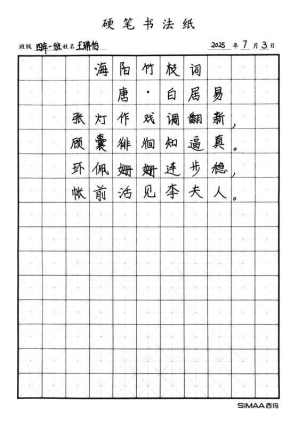 硬笔书法纸
班级 四年一班 姓名 王 怡 2025 年 7 月 3 日
海阳竹枝词
唐·白居易
张灯作戏调翻新，
顾囊徘徊知逼真。
环佩姗姗连步稳，
帐前活见李夫人。
SIMAA西玛